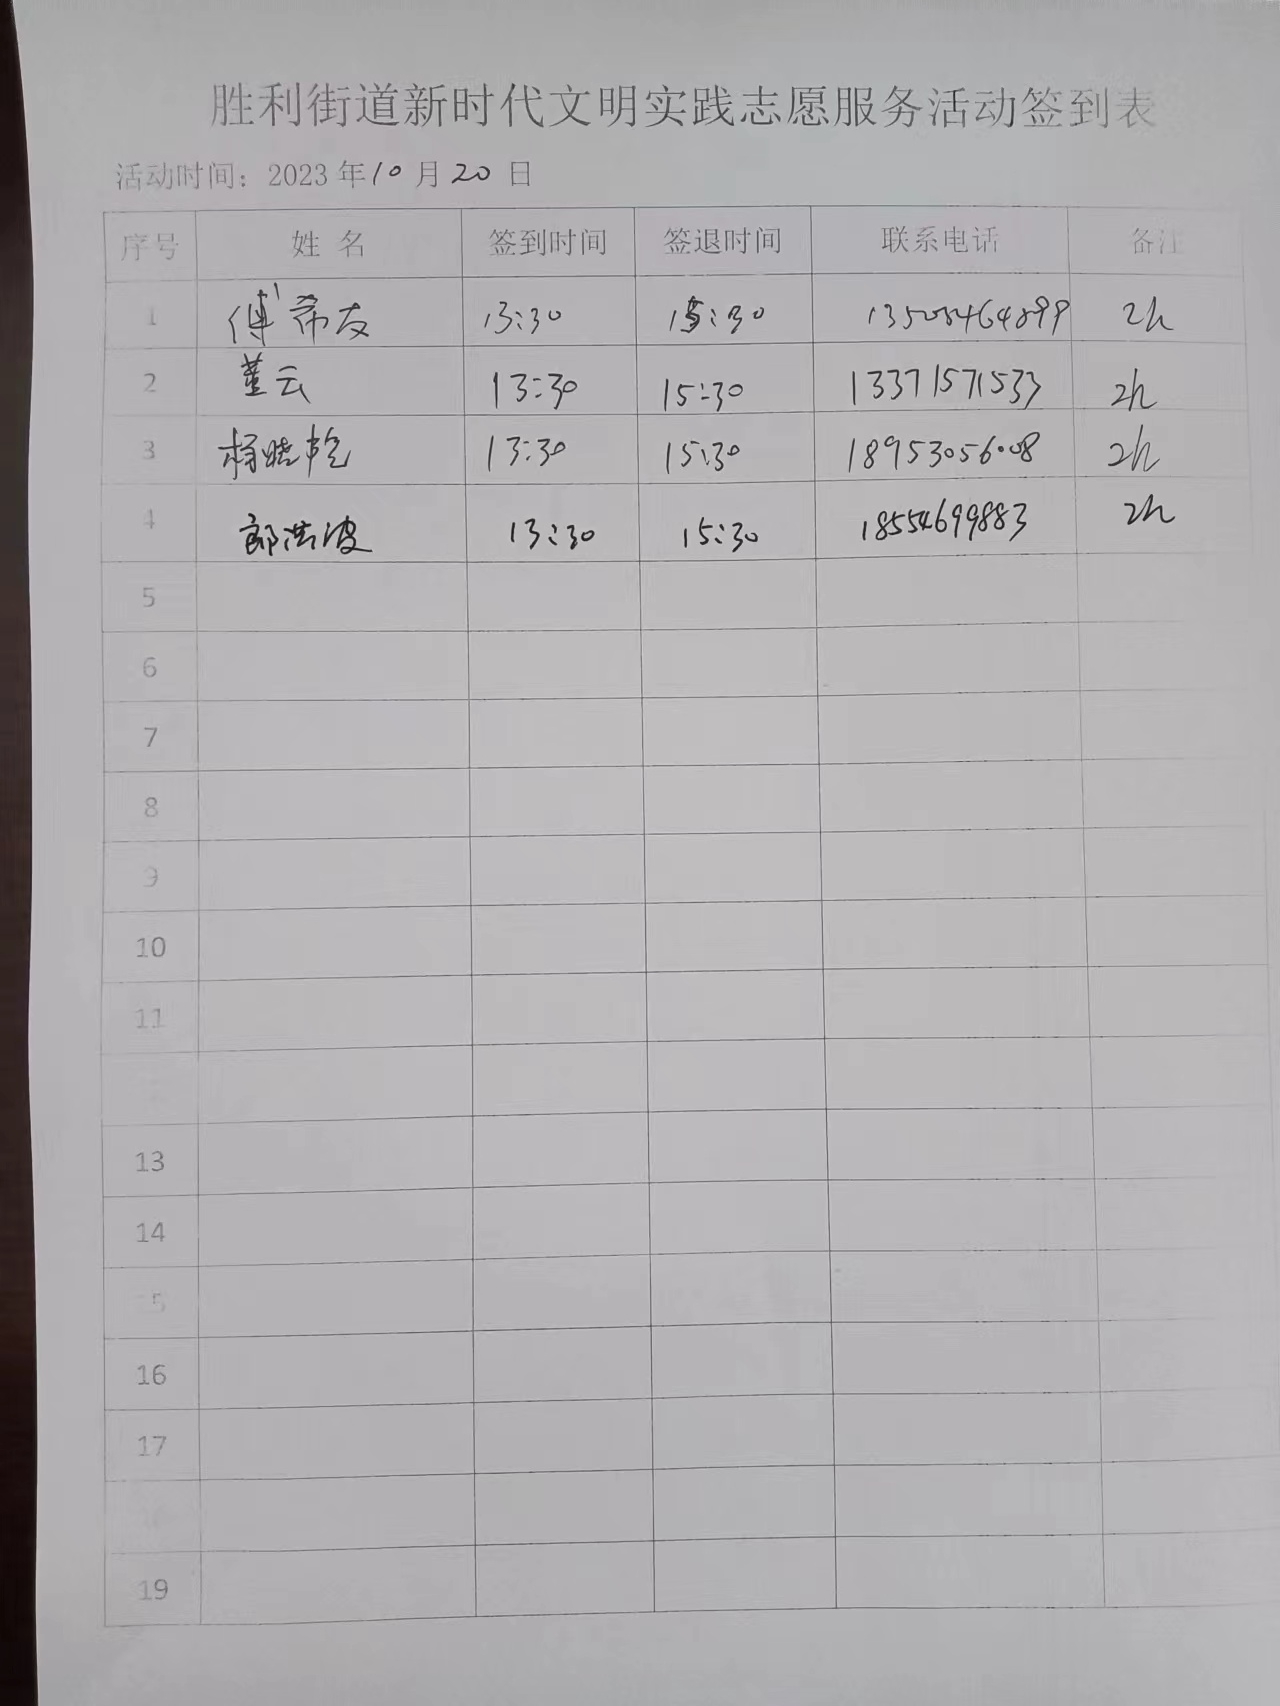 胜利街道新时代文明实践志愿服务活动签到表
活动时间：2023年10月20日
序号 姓 名 签到时间 签退时间 联系电话 备注
1 傅希友 13:30 15:30 13505464899 2h
2 董云 13:30 15:30 13371571533 2h
3 杨晓艳 13:30 15:30 18953056008 2h
4 郎洪波 13:30 15:30 18554699883 2h
5
6
7
8
9
10
11
13
14
15
16
17
19